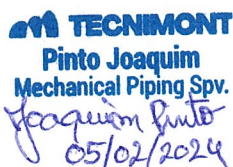 TECNIMONT
Pinto Joaquim
Mechanical Piping Spv.
Joaquim Pinto
05/02/2024